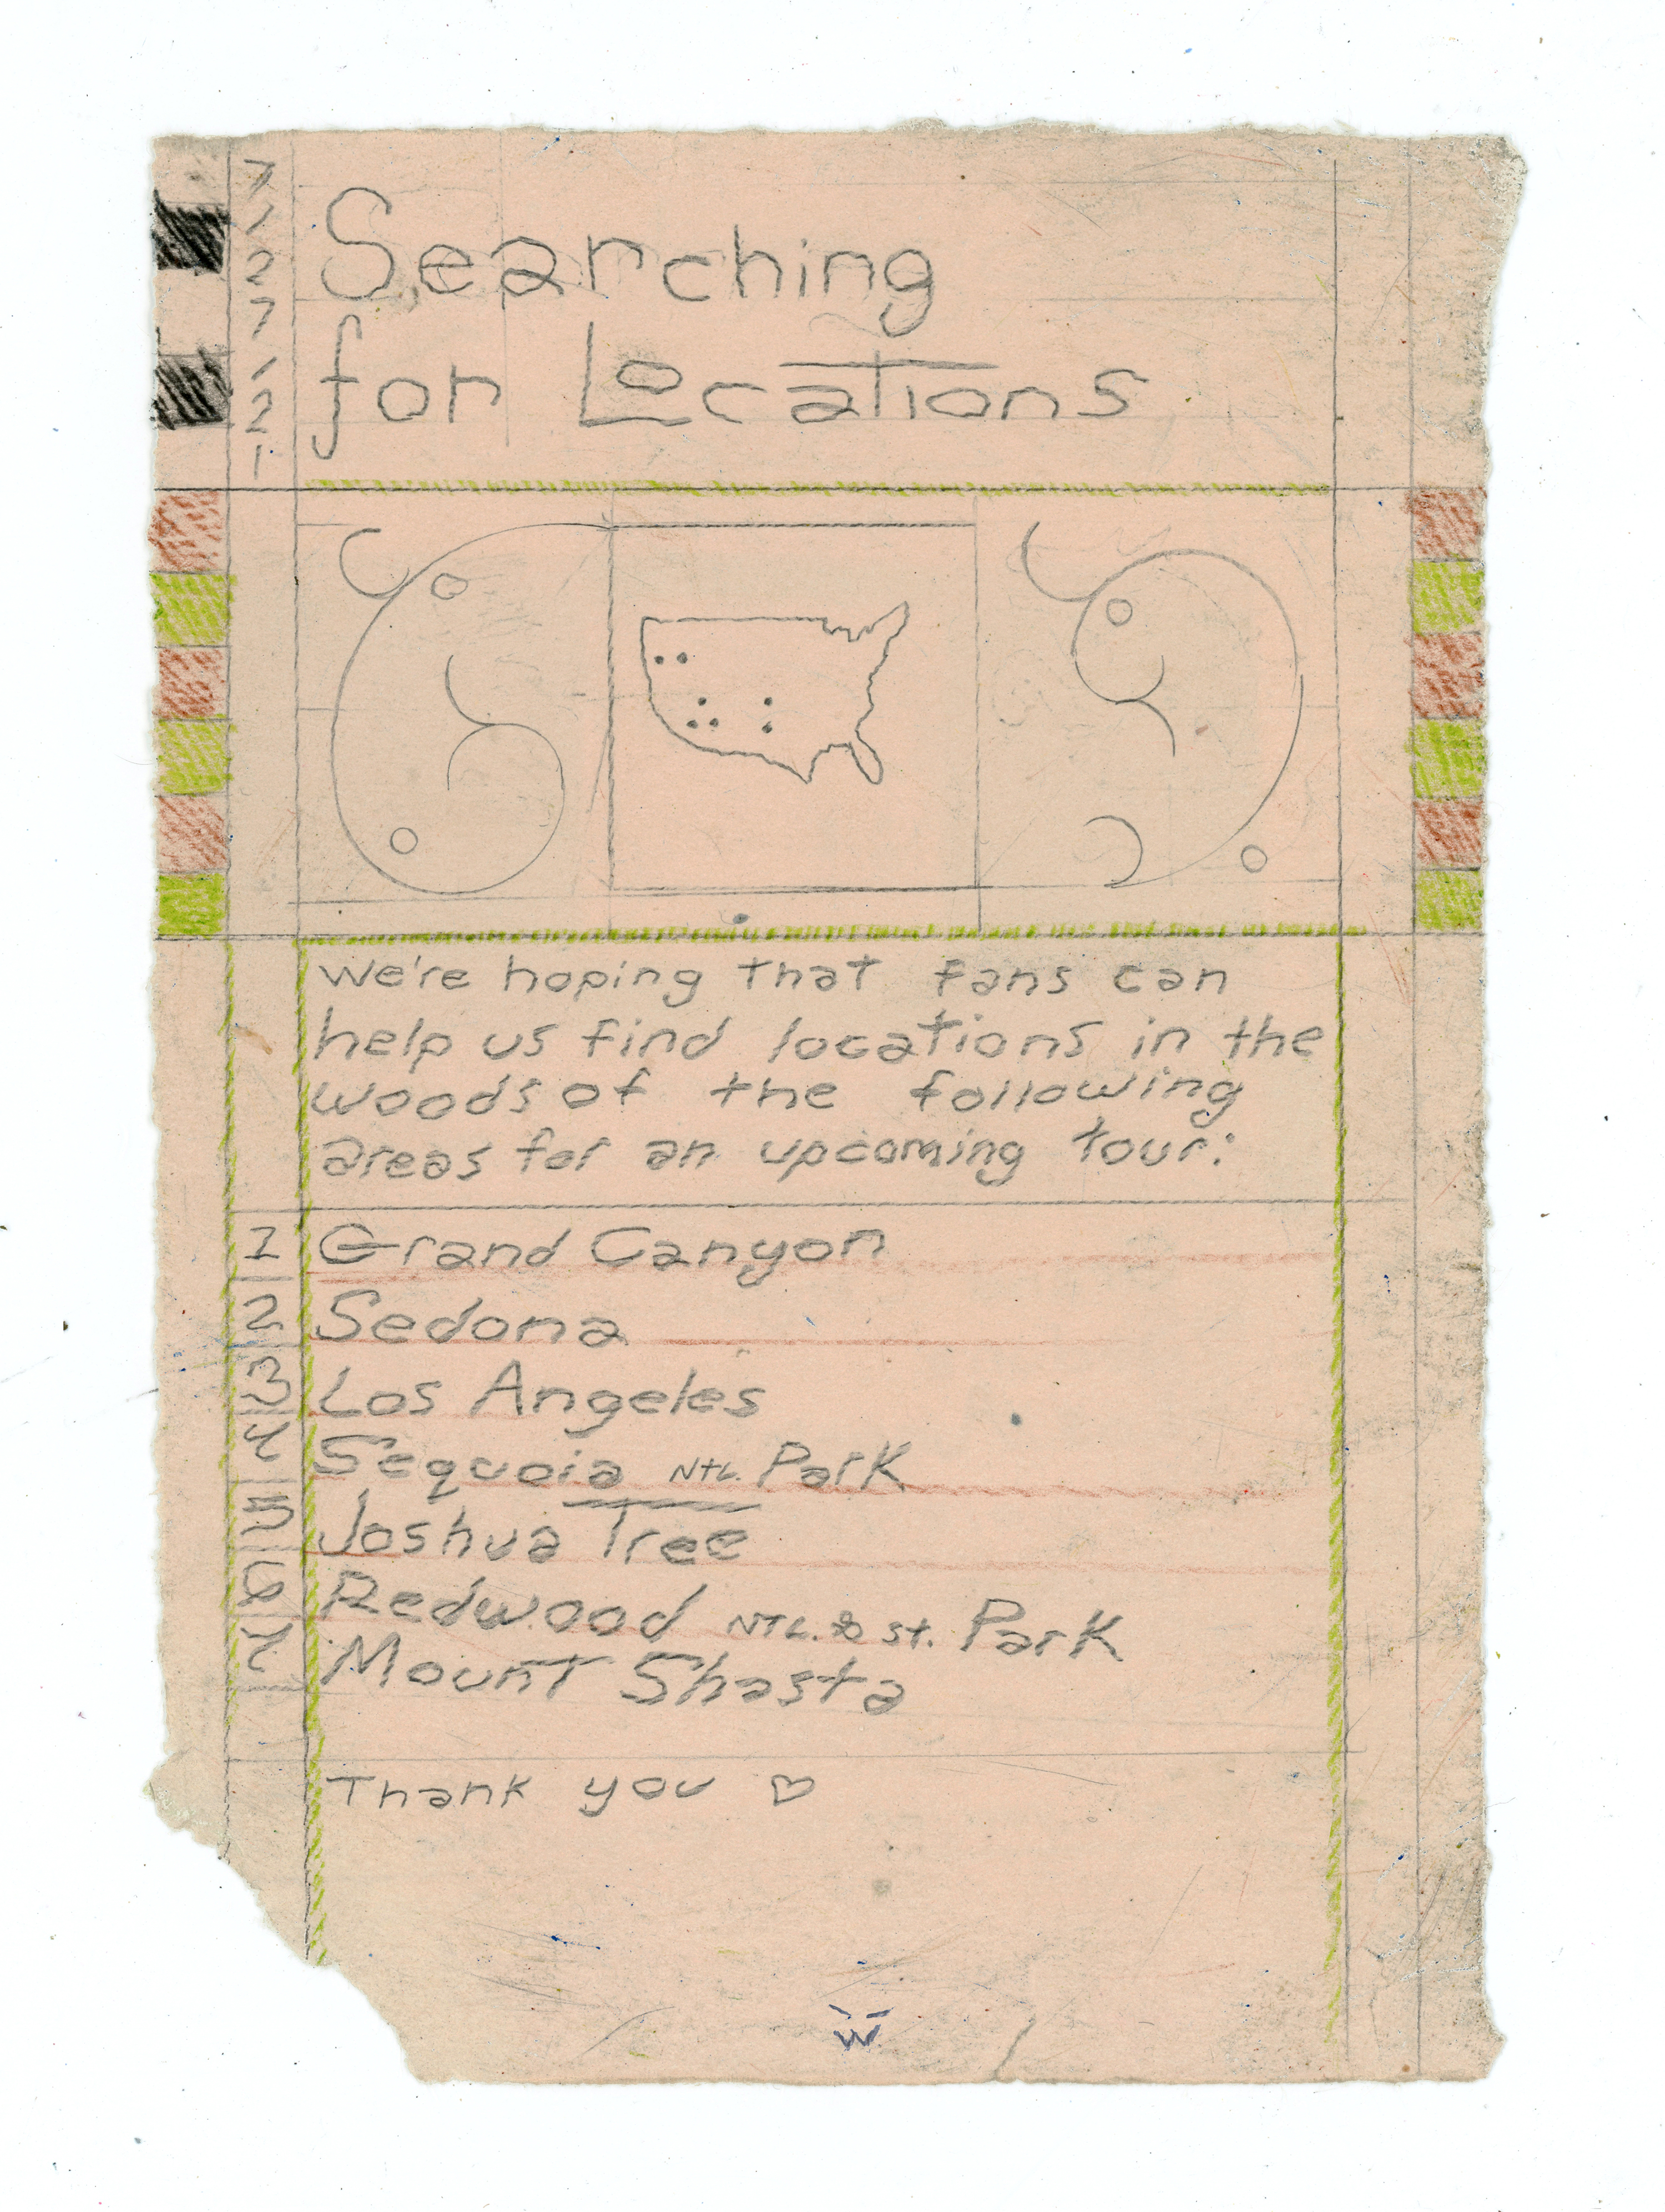 7
1
2
7
1
2
1
Searching
for Locations
We're hoping that fans can
help us find locations in the
woods of the following
areas for an upcoming tour:
1 Grand Canyon
2 Sedona
3 Los Angeles
4 Sequoia NTL. Park
5 Joshua Tree
6 Redwood NTL. & St. Park
7 Mount Shasta
Thank you ♡
W